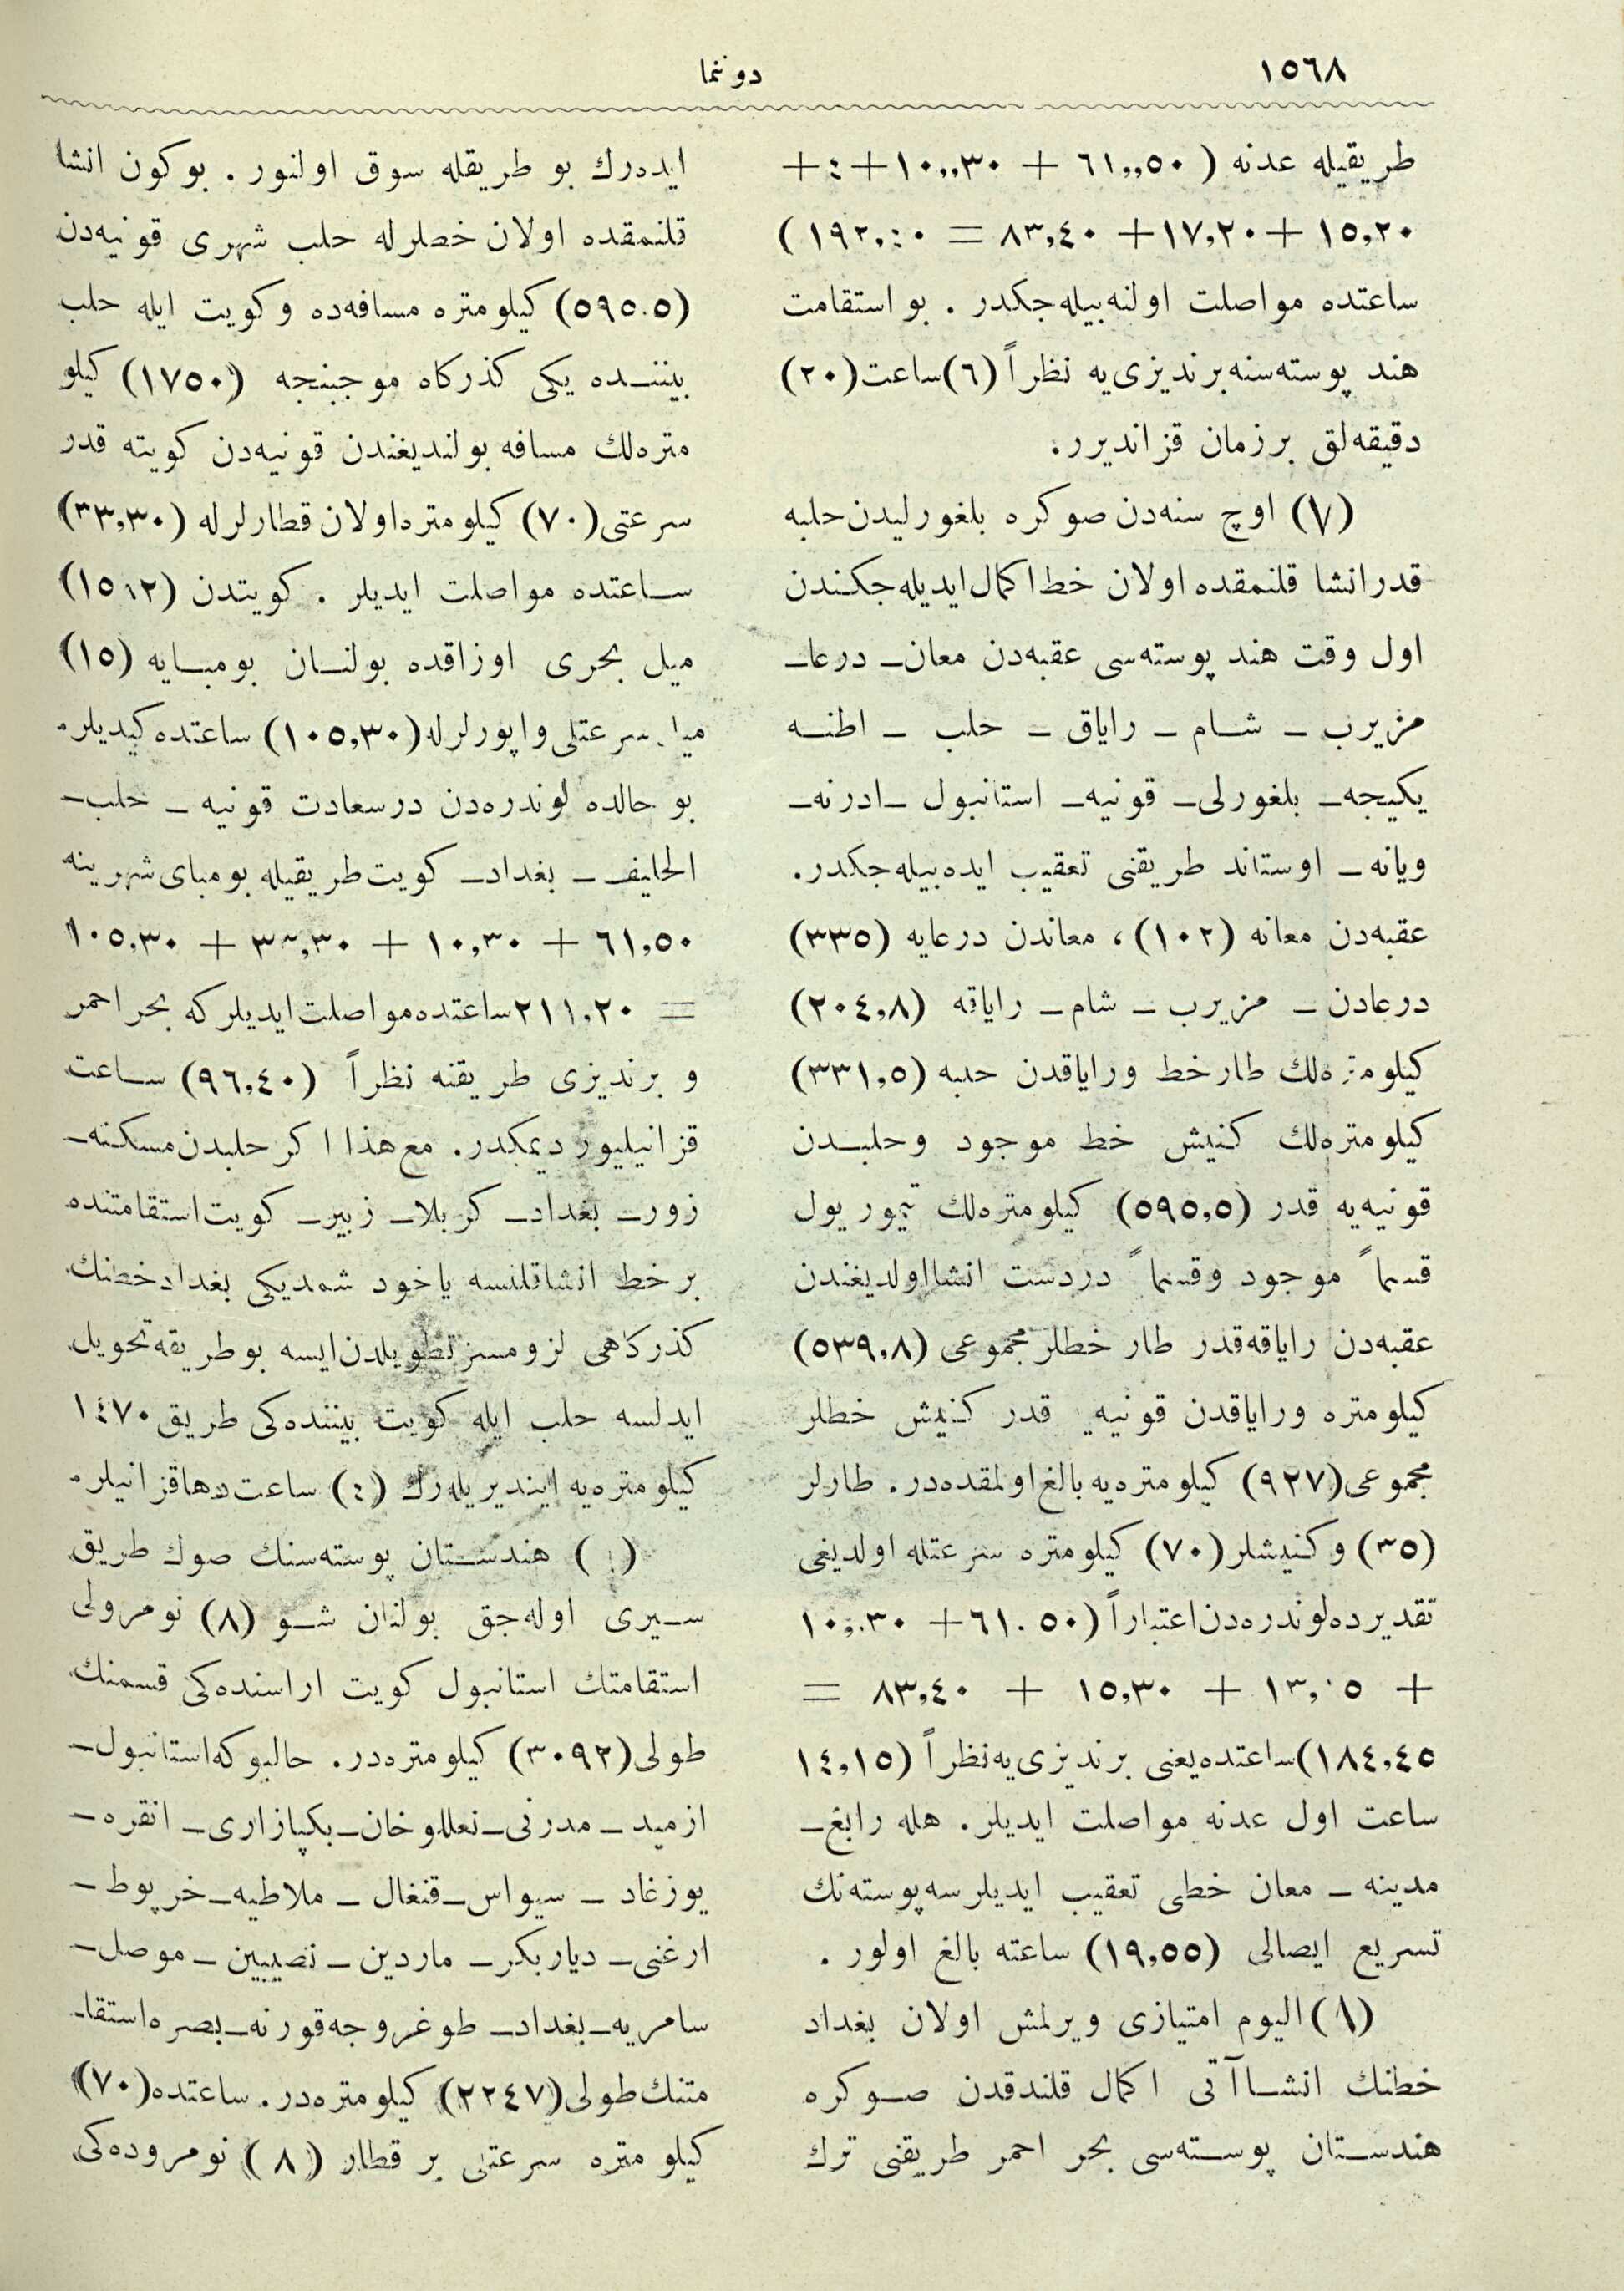 ١٥٦٨
دوننما
طریقیله عدنه ( ٦١,,٥٠ + ١٠,,٣٠ + ٤ +
١٥,٢٠ + ١٧,٢٠ + ٨٣,٤٠ = ١٩٢,٤٠ )
ساعتده مواصلت اولنه‌بیله‌جکدر . بو استقامت
هند پوسته‌سنه برندیزی‌یه نظراً (٦) ساعت (٢٠)
دقیقه‌لق برزمان قزاندیرر.
(٧) اوچ سنه‌دن صوکره بلغورلیدن حلبه
قدر انشا قلنمقده اولان خط اکمال ایدیله‌جکندن
اول وقت هند پوسته‌سی عقبه‌دن معان ـ درعا ـ
مزیرب ـ شام ـ رایاق ـ حلب ـ اطنه
یکیجه ـ بلغورلی ـ قونیه ـ استانبول ـ ادرنه ـ
ویانه ـ اوستاند طریقنی تعقیب ایده‌بیله‌جکدر.
عقبه‌دن معانه (١٠٢) ، معاندن درعایه (٣٣٥)
درعادن ـ مزیرب ـ شام ـ رایاقه (٢٠٤,٨)
کیلومتره‌لك طار خط ورایاقدن حلبه (٣٣١,٥)
کیلومتره‌لك کنیش خط موجود وحلبدن
قونیه‌یه قدر (٥٩٥,٥) کیلومتره‌لك تیموریول
قسماً موجود وقسماً دردست انشا اولدیغندن
عقبه‌دن رایاقه‌قدر طار خطلر مجموعی (٥٣٩,٨)
کیلومتره ورایاقدن قونیه‌یه قدر کنیش خطلر
مجموعی (٩٢٧) کیلومتره‌یه بالغ اولمقده‌در . طارلر
(٣٥) وکنیشلر (٧٠) کیلومتره سرعتله اولدیغی
تقدیرده لوندره‌دن اعتباراً (٦١.٥٠ + ١٠,.٣٠
+ ١٣,١٥ + ١٥,٣٠ + ٨٣,٤٠ =
١٨٤,٤٥) ساعتده یعنی برندیزی‌یه نظراً (١٤,١٥
ساعت اول عدنه مواصلت ایدیلر . هله رابغ ـ
مدینه ـ معان خطی تعقیب ایدیلرسه پوسته‌نك
تسریع ایصالی (١٩,٥٥) ساعته بالغ اولور .
(٨) الیوم امتیازی ویرلمش اولان بغداد
خطنك انشاآتی اکمال قلندقدن صوکره
هندستان پوسته‌سی بحر احمر طریقنی ترك
ایده‌رك بو طریقله سوق اولنور . بوکون انشا
قلنمقده اولان خطلرله حلب شهری قونیه‌دن
(٥٩٥.٥) کیلومتره مسافه‌ده وکویت ایله حلب
بیننده یکی کذرکاه موجبنجه (١٧٥٠) کیلو
متره‌لك مسافه بولندیغندن قونیه‌دن کویته قدر
سرعتی (٧٠) کیلومتره اولان قطارلرله (٣٣,٣٠)
ساعتده مواصلت ایدیلر . کویتدن (١٥١٢)
میل بحری اوزاقده بولنان بومبایه (١٥)
میل سرعتلی واپورلرله (١٠٥,٣٠) ساعتده کیدیلر.
بو حالده لوندره‌دن درسعادت قونیه ـ حلب ـ
الحلیف ـ بغداد ـ کویت طریقیله بومبای شهرینه
٦١,٥٠ + ١٠,٣٠ + ٣٣,٣٠ + ١٠٥,٣٠
= ٢١١,٢٠ ساعتده مواصلت ایدیلر که بحر احمر
و برندیزی طریقنه نظراً (٩٦,٤٠) ساعت
قزانیلیور دیمکدر . مع هذا اکر حلبدن مسکنه ـ
زور ـ بغداد ـ کربلا ـ زبیر ـ کویت استقامتنده
برخط انشا قلنسه یاخود شمدیکی بغداد خطنك
کذرکاهی لزومسز تطویلدن ایسه بوطریقه تحویل
ایدلسه حلب ایله کویت بیننده‌کی طریق ١٤٧٠
کیلومتره‌یه ایندیریله‌رك (٤) ساعت دها قزانیلر.
هندستان پوسته‌سنك صوك طریق
سیری اوله‌جق بولنان شو (٨) نومرولی
استقامتك استانبول کویت اراسنده‌کی قسمنك
طولی (٣٠٩٢) کیلومتره‌در . حالبوکه استانبول ـ
ازمید ـ مدرنی ـ نعللوخان ـ بکپازاری ـ انقره ـ
یوزغاد ـ سیواس ـ قنغال ـ ملاطیه ـ خرپوط ـ
ارغنی ـ دیاربکر ـ ماردین ـ نصیبین ـ موصل ـ
سامریه ـ بغداد ـ طوغروجه قورنه ـ بصره استقا ـ
متنك طولی (٢٢٤٧) کیلومتره‌در . ساعتده (٧٠)
کیلو متره سرعتلی بر قطار (٨) نومروده‌کی